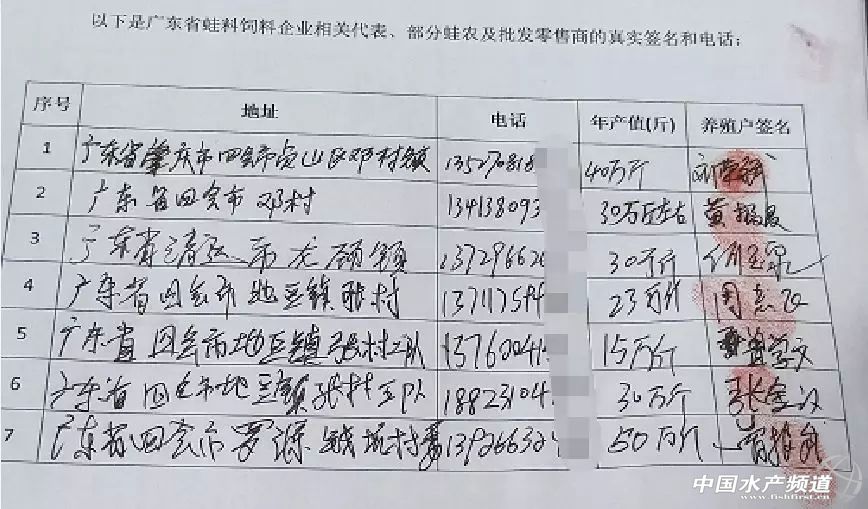 以下是广东省蛙料饲料企业相关代表、部分蛙农及批发零售商的真实签名和电话：
序号 地址 电话 年产值(斤) 养殖户签名
1 广东省肇庆市四会市贞山区邓村镇 135270818 40万斤
2 广东省四会市邓村 134138093 30万斤左右 黄
3 广东省清远市龙颈镇 137296620 30万斤
4 广东省四会市地豆镇张村 137117594 23万斤 周志
5 广东省四会市地豆镇张村二队 13760041 15万斤 曾学文
6 广东省四会市地豆镇张村五队 18823104 30万斤 张金
7 广东省四会市罗源镇 139266324 50万斤
中国水产频道
www.fishfirst.cn